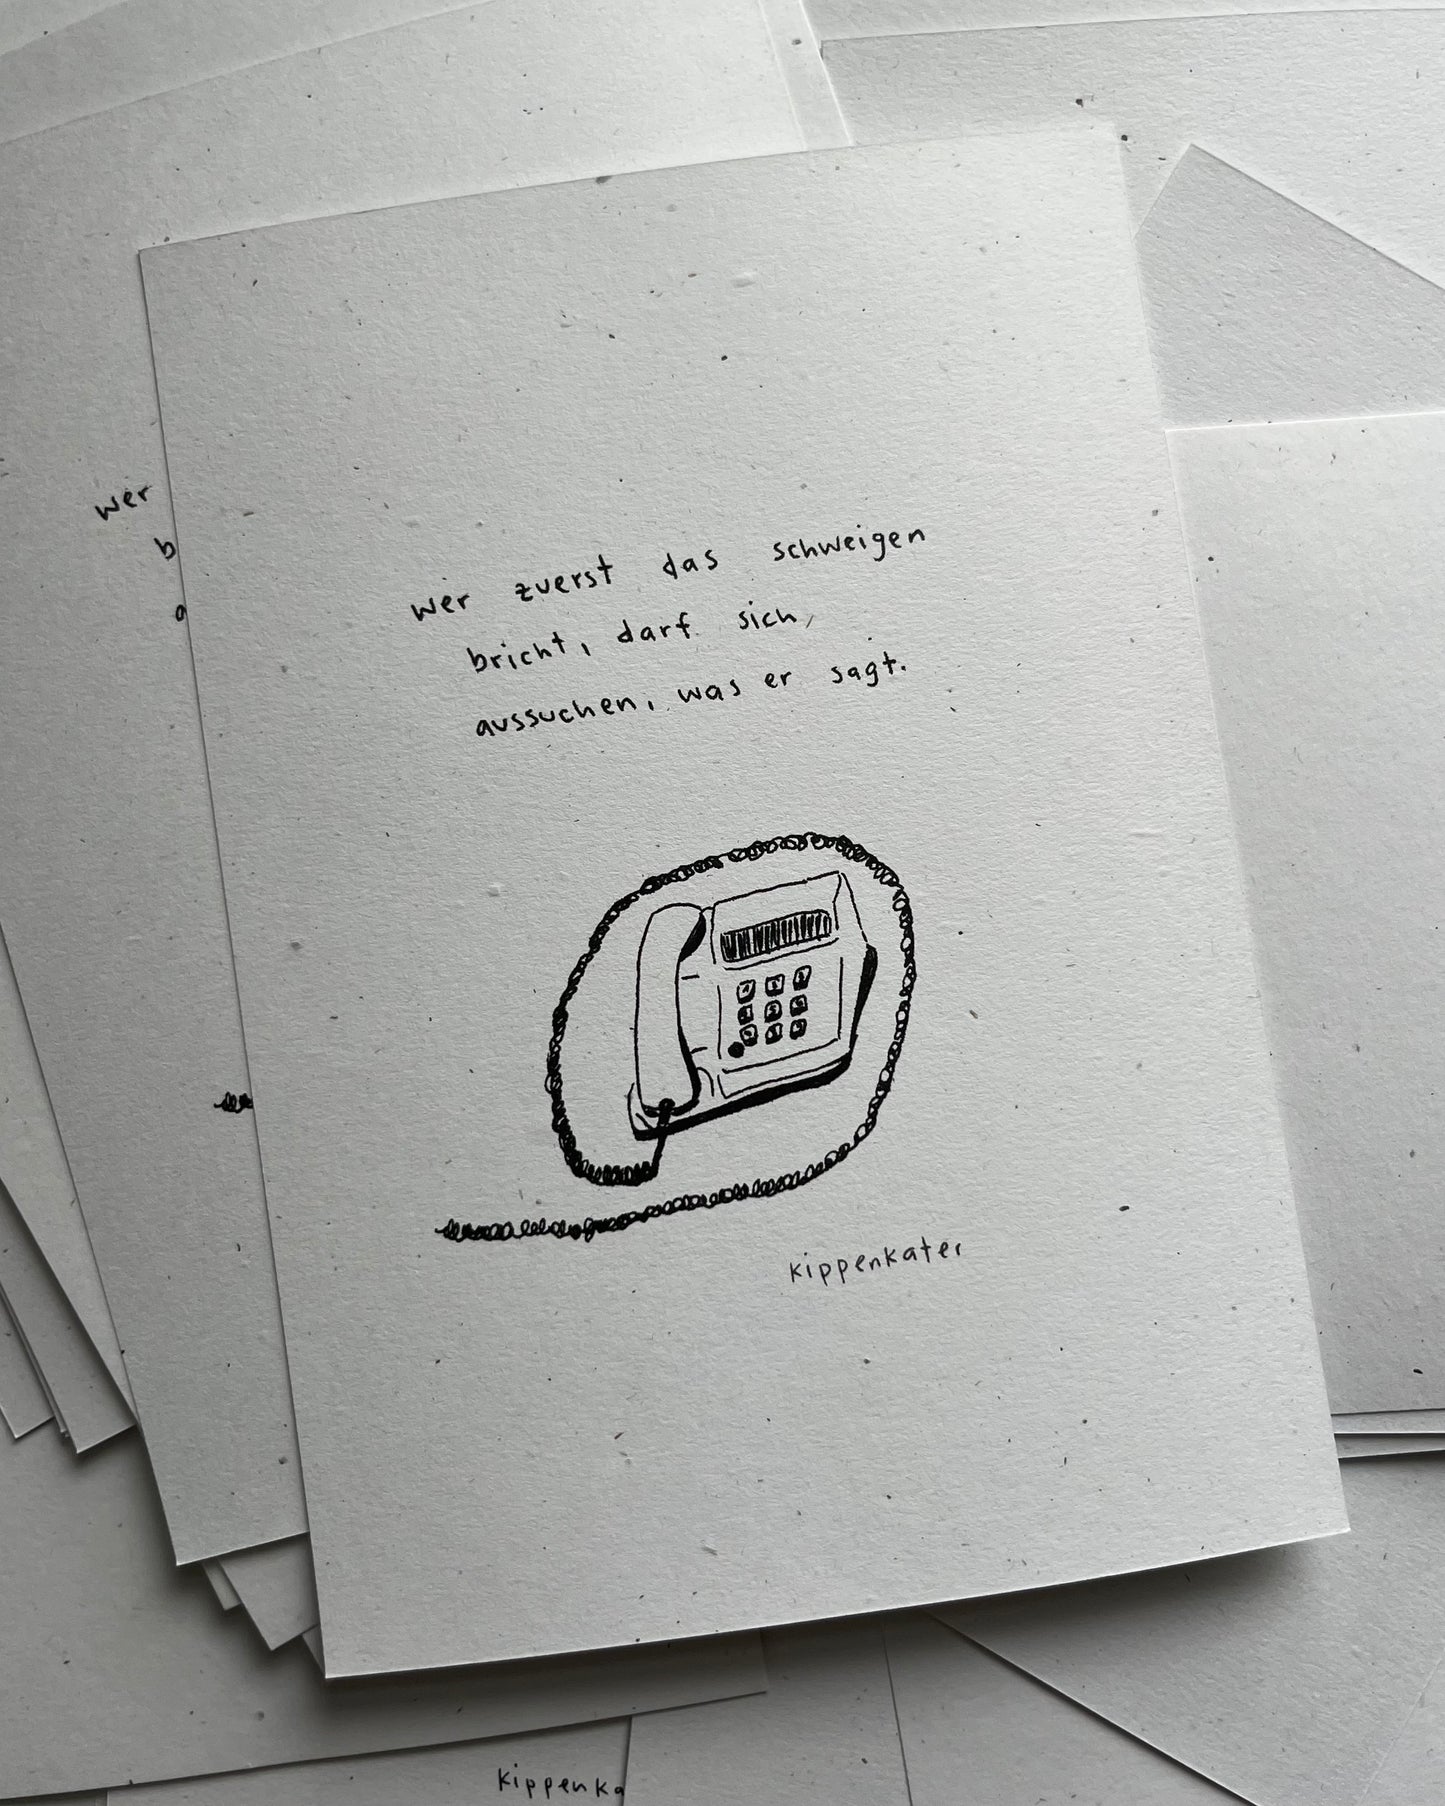 wer zuerst das schweigen
bricht, darf sich,
aussuchen, was er sagt.
kippenkater
wer
b
a
kippenka